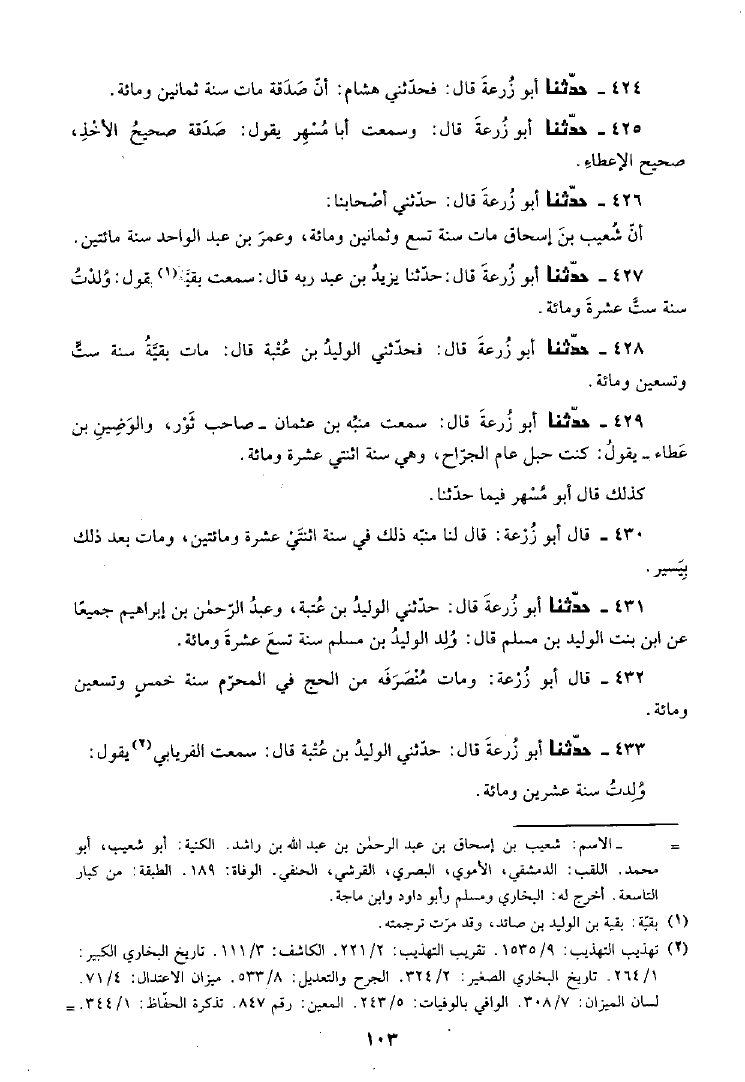 ٤٢٤ ـ حدّثنا أبو زُرعةَ قال: فحدّثني هشام: أنّ صَدَقة مات سنة ثمانين ومائة.
٤٢٥ ـ حدّثنا أبو زُرعةَ قال: وسمعت أبا مُسْهِر يقول: صَدَقة صحيحُ الأخْذِ،
صحيح الإعطاءِ.
٤٢٦ ـ حدّثنا أبو زُرعةَ قال: حدّثني أصْحابنا:
أنّ شُعيب بنَ إسحاق مات سنة تسع وثمانين ومائة، وعمرَ بن عبد الواحد سنة مائتين.
٤٢٧ ـ حدّثنا أبو زُرعةَ قال: حدّثنا يزيدُ بن عبد ربه قال: سمعت بقيَّة(١) يقول: وُلدْتُ
سنة ستَّ عشرةَ ومائة.
٤٢٨ ـ حدّثنا أبو زُرعةَ قال: فحدّثني الوليدُ بن عُتْبة قال: مات بقيَّةُ سنة ستٍّ
وتسعين ومائة.
٤٢٩ ـ حدّثنا أبو زُرعةَ قال: سمعت منبِّه بن عثمان ـ صاحب ثَوْر، والوَضِينِ بن
عَطاء ـ يقولُ: كنت حبل عام الجرّاح، وهي سنة اثنتي عشرة ومائة.
كذلك قال أبو مُسْهر فيما حدّثنا.
٤٣٠ ـ قال أبو زُرْعة: قال لنا منبّه ذلك في سنة اثنتَيْ عشرة ومائتين، ومات بعد ذلك
بِيَسير.
٤٣١ ـ حدّثنا أبو زُرعةَ قال: حدّثني الوليدُ بن عُتبة، وعبدُ الرّحمٰن بن إبراهيم جميعًا
عن ابن بنت الوليد بن مسلم قال: وُلد الوليدُ بن مسلم سنة تسعَ عشرةَ ومائة.
٤٣٢ ـ قال أبو زُرْعة: ومات مُنْصَرَفَه من الحج في المحرّم سنة خمسٍ وتسعين
ومائة.
٤٣٣ ـ حدّثنا أبو زُرعةَ قال: حدّثني الوليدُ بن عُتْبة قال: سمعت الفريابي(٢) يقول:
وُلِدتُ سنة عشرين ومائة.
= ـ الاسم: شعيب بن إسحاق بن عبد الرحمٰن بن عبد الله بن راشد. الكنية: أبو شعيب، أبو
محمد. اللقب: الدمشقي، الأموي، البصري، القرشي، الحنفي. الوفاة: ١٨٩. الطبقة: من كبار
التاسعة. أخرج له: البخاري ومسلم وأبو داود وابن ماجة.
(١) بقيّة: بقية بن الوليد بن صائد، وقد مرّت ترجمته.
(٢) تهذيب التهذيب: ١٥٣٥/٩. تقريب التهذيب: ٢٢١/٢. الكاشف: ١١١/٣. تاريخ البخاري الكبير:
٢٦٤/١. تاريخ البخاري الصغير: ٣٢٤/٢. الجرح والتعديل: ٥٣٣/٨. ميزان الاعتدال: ٧١/٤.
لسان الميزان: ٣٠٨/٧. الوافي بالوفيات: ٢٤٣/٥. المعين: رقم ٨٤٧. تذكرة الحفّاظ: ٣٤٤/١. =
١٠٣